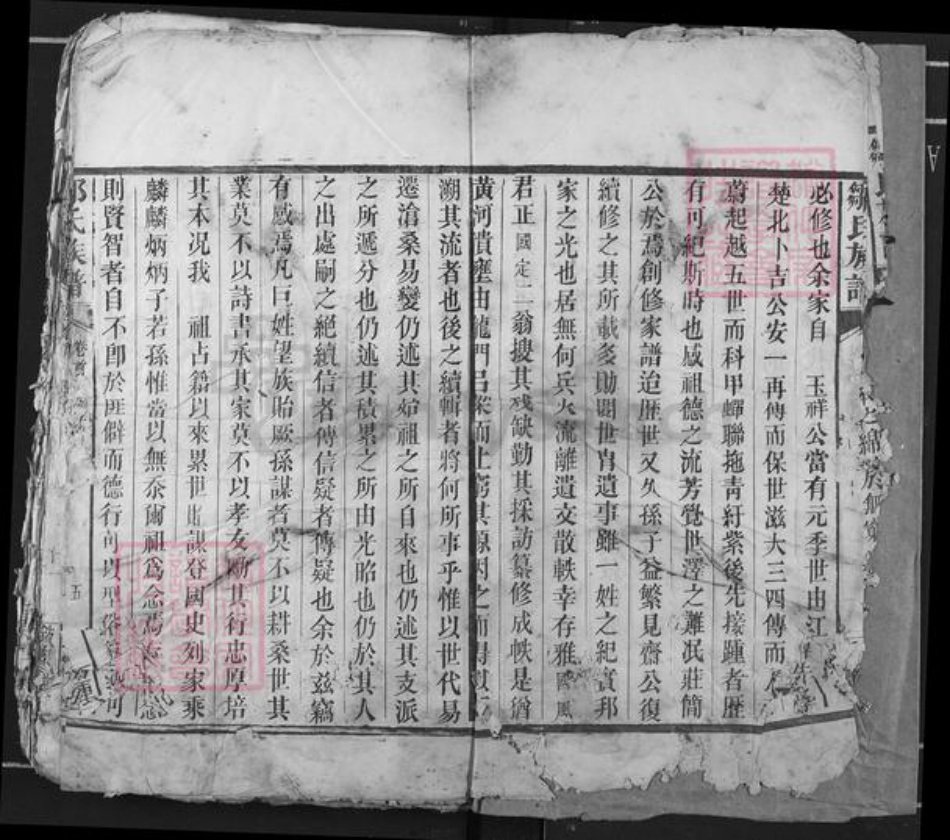 鄒氏族譜
必修也余家自 玉祥公當有元季世由江
楚北卜吉公安一再傳而保世滋大三四傳而
蔚起越五世而科甲蟬聯拖青紆紫後先接踵者歷
有可紀斯時也咸祖德之流芳覺世澤之難泯莊簡
公於焉創修家譜迨歷世又久孫子益繁見齋公復
續修之其所載多助閥世胄遺事雖一姓之紀實邦
家之光也居無何兵火流離遺文散軼幸存雅國風
君正國定二翁搜其殘缺勤其採訪纂修成帙是猶
黃河潰壅由龍門呂梁而上窮其源因之而得其
溯其流者也後之續輯者將何所事乎惟以世代易
遷滄桑易變仍述其始祖之所自來也仍述其支派
之所遞分也仍述其積累之所由光昭也仍於其人
之出處嗣之絕續信者傳信疑者傳疑也余於茲竊
有感焉凡巨姓望族貽厥孫謀者莫不以耕桑世其
業莫不以詩書承其家莫不以孝友勵其行忠厚培
其本况我 祖占籍以來累世貽謀登國史列家乘
麟麟炳炳子若孫惟當以無忝爾祖為念焉
則賢智者自不卽於匪僻而德行可以型俗
氏族譜
卷首
五